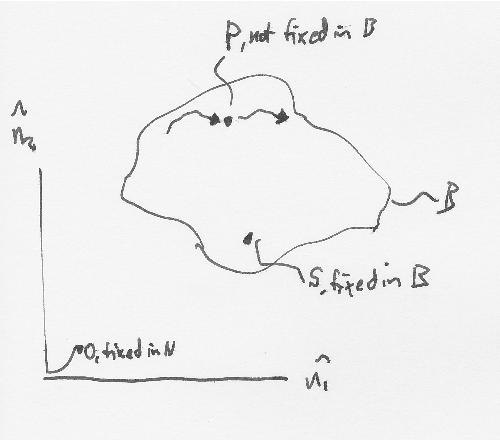 P, not fixed in B
n̂₂
B
S, fixed in B
O, fixed in N
n̂₁